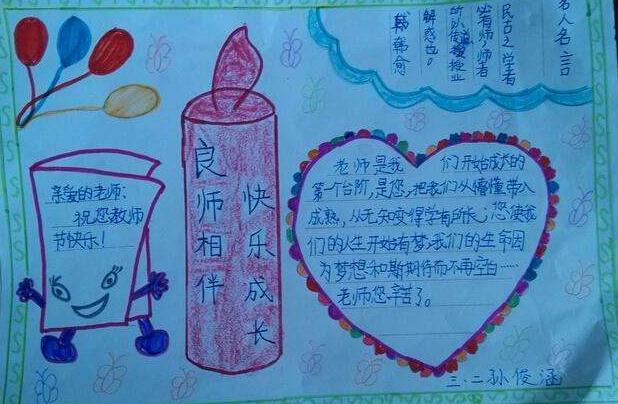 名人名言
民古之学者
必有师,师者
所以传道授业
解惑也。
韩愈
良师相伴
快乐成长
亲爱的老师:
祝您教师
节快乐!
老师是我们开始成长的
第一个台阶,是您,把我们从懵懂带入
成熟,从无知变得学有所长,您使我
们的人生开始有梦,我们的生命因
为梦想和斯期待而不再空白……
老师您辛苦了。
三、二孙俊涵